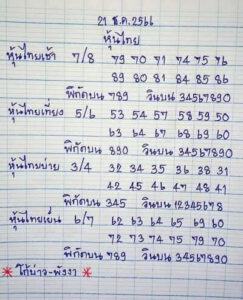 21 ธ.ค.2566
หุ้นไทย
หุ้นไทยเช้า 7/8 79 70 71 74 75 76
89 80 81 84 85 86
พิกัดบน 789 วินบน 34567890
หุ้นไทยเที่ยง 5/6 53 54 57 58 59 50
63 64 67 68 69 60
พิกัดบน 890 วินบน 34567890
หุ้นไทยบ่าย 3/4 32 34 35 36 38 31
42 45 46 47 48 41
พิกัดบน 345 วินบน 12345678
หุ้นไทยเย็น 6/7 62 63 64 65 69 60
72 73 74 75 79 70
พิกัดบน 789 วินบน 34567890
* โก้บ่าว-พังงา *